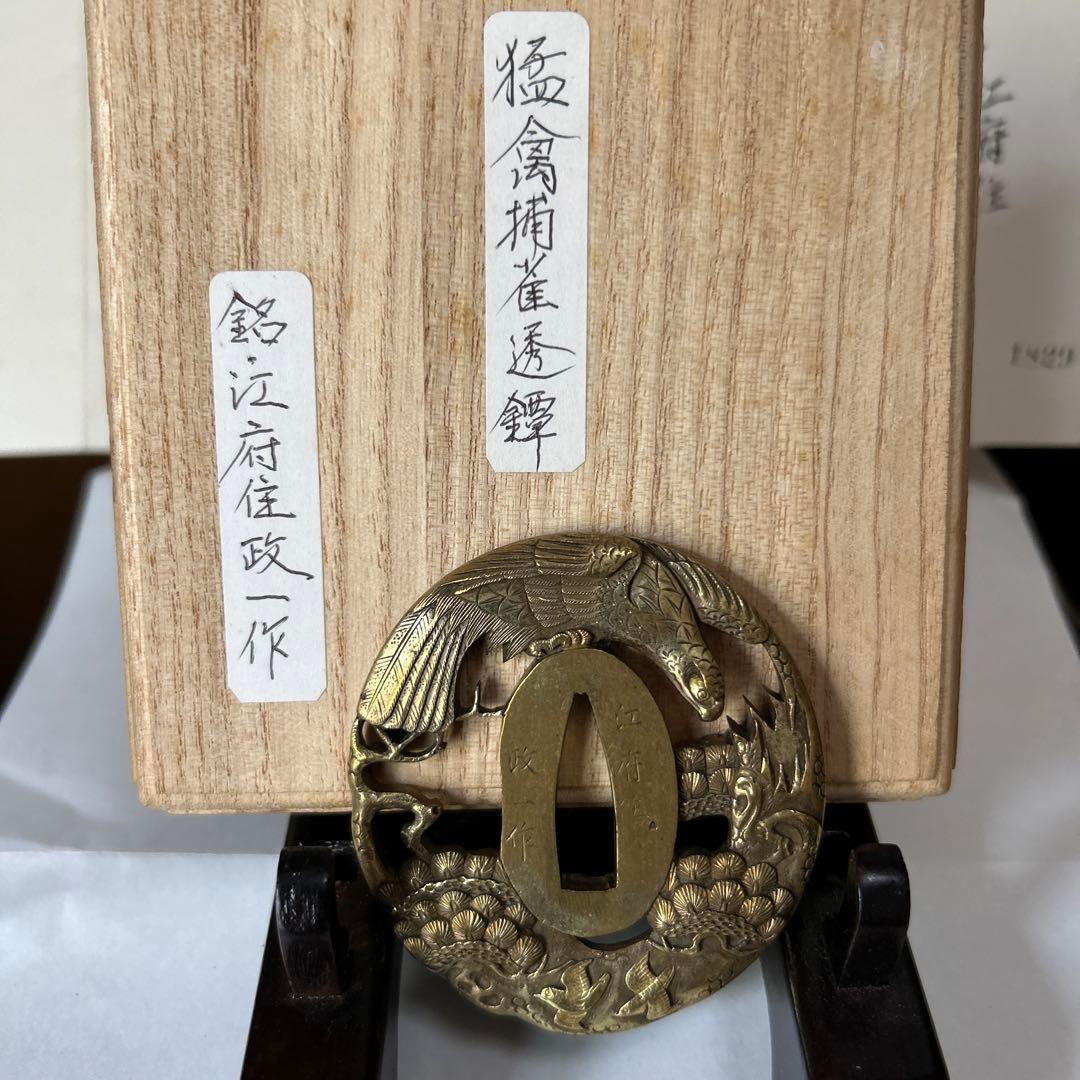 猛禽捕雀透鐔
銘・江府住政一作
江府住
政一作
江府住
1429